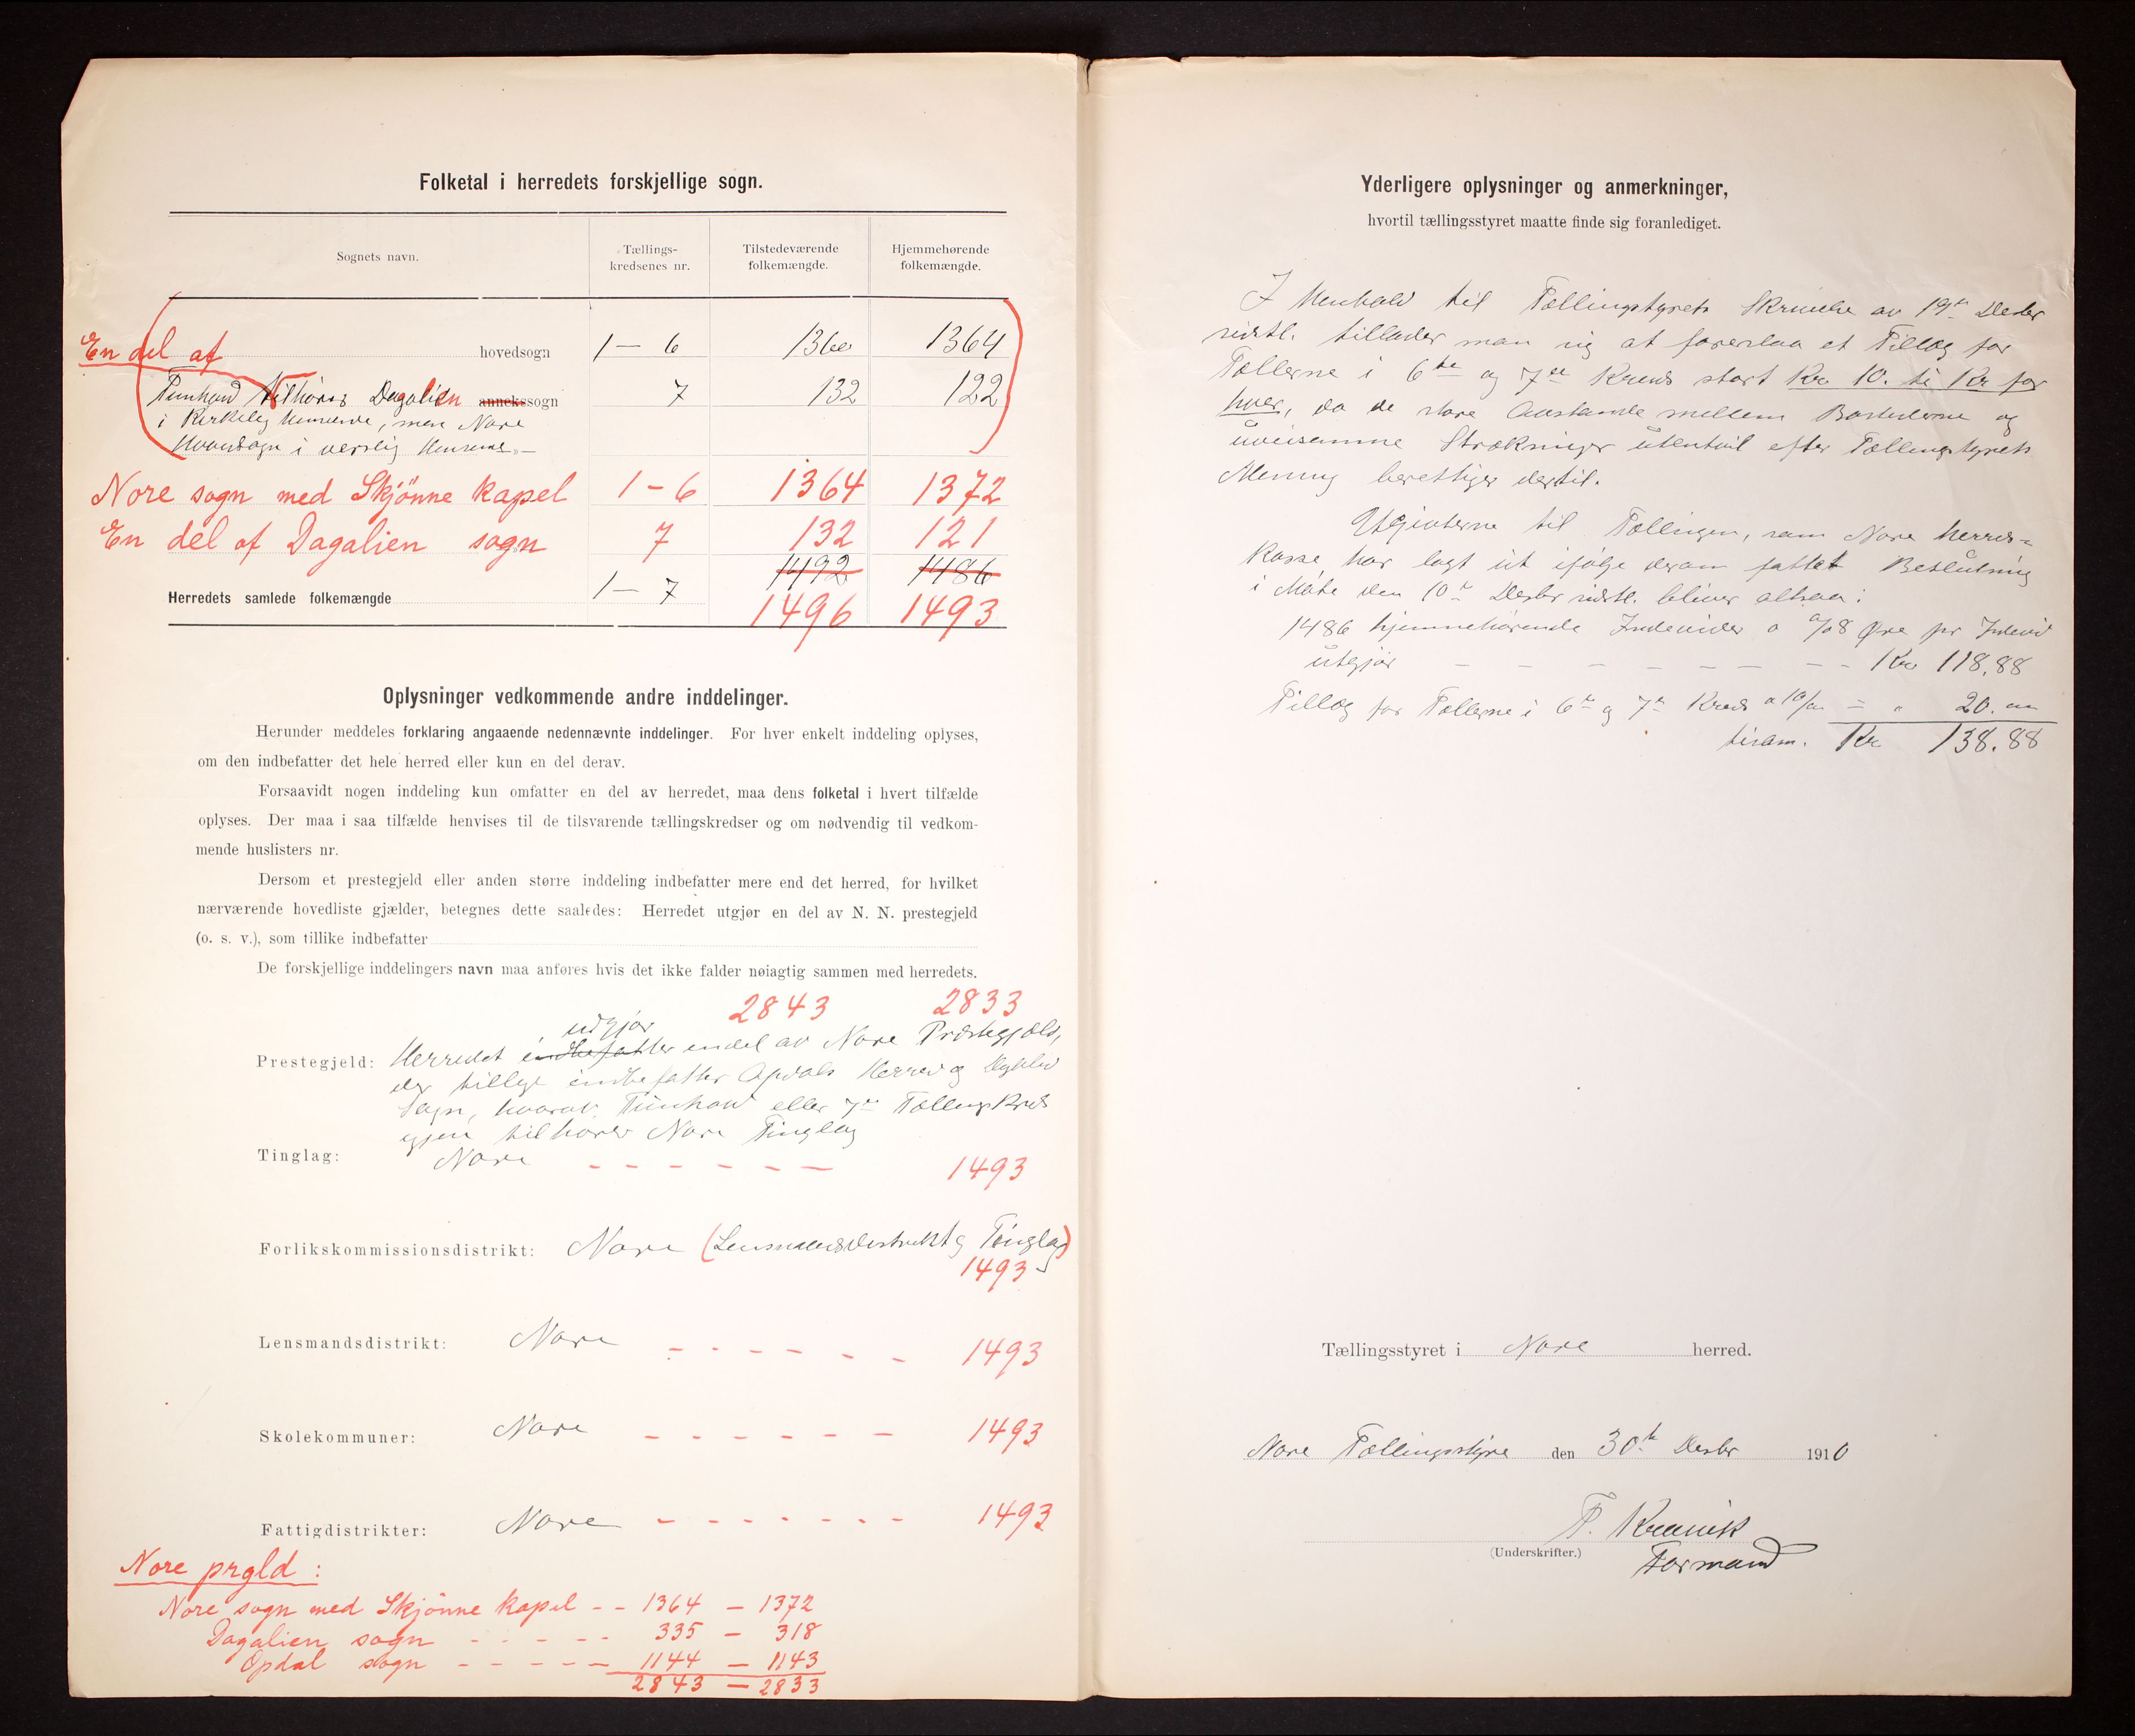 Folketal i herredets forskjellige sogn.
Sognets navn.
Tællings-
kredsenes nr.
Tilstedeværende
folkemængde.
Hjemmehørende
folkemængde.
En del af hovedsogn 1 – 6 1360 1364
Tunhovd tilhører Dagalien annekssogn 7 132 122
i Kirkelig Henseende, men Nore
Hovedsogn i verslig Henseende
Nore sogn med Skjönne kapel 1 – 6 1364 1372
En del af Dagalien sogn 7 132 121
1492 1486
Herredets samlede folkemængde 1 – 7 1496 1493
Oplysninger vedkommende andre inddelinger.
Herunder meddeles forklaring angaaende nedennævnte inddelinger. For hver enkelt inddeling oplyses,
om den indbefatter det hele herred eller kun en del derav.
Forsaavidt nogen inddeling kun omfatter en del av herredet, maa dens folketal i hvert tilfælde
oplyses. Der maa i saa tilfælde henvises til de tilsvarende tællingskredser og om nødvendig til vedkom-
mende huslisters nr.
Dersom et prestegjeld eller anden større inddeling indbefatter mere end det herred, for hvilket
nærværende hovedliste gjælder, betegnes dette saaledes: Herredet utgjør en del av N. N. prestegjeld
(o. s. v.), som tillike indbefatter
De forskjellige inddelingers navn maa anføres hvis det ikke falder nøiagtig sammen med herredets.
2843 2833
udgjør
Prestegjeld: Herredet indbefatter endel av Nore Præstegjæld,
der tillige indbefatter Opdals Herred og Dagalid
Sogn, hvorav Tunhovd eller 7de Tællingskreds
igjen tilhører Nore Tinglag
Tinglag: Nore – – – – – – 1493
Forlikskommissionsdistrikt: Nore (Lensmandsdistrikt og Tinglag)
1493
Lensmandsdistrikt: Nore – – – – – – 1493
Skolekommuner: Nore – – – – – – 1493
Fattigdistrikter: Nore – – – – – – – 1493
Nore prgld :
Nore sogn med Skjönne kapel – – 1364 – 1372
Dagalien sogn – – – – – 335 – 318
Opdal sogn – – – – – 1144 – 1143
2843 – 2833
Yderligere oplysninger og anmerkninger,
hvortil tællingsstyret maatte finde sig foranlediget.
I Henhold til Tællingstyrets Skrivelse av 19de Decbr
sidstl. tillader man sig at foreslaa et Tillæg for
Tællerne i 6te og 7de Kreds stort Kr 10. ti Kr for
hver, da de store Avstande mellem Bostederne og
uveisomme Strækninger utentvil efter Tællingstyrets
Mening berettiger dertil.
Utgivterne til Tællingen, som Nore Herreds=
kasse har lagt ut ifølge derom fattet Beslutning
i Møte den 10de Decbr sidstl. bliver altsaa:
1486 hjemmehørende Individer a 0/08 Øre pr Individ
utgjør – – – – – – – – Kr 118,88
Tillæg for Tællerne i 6te og 7de Kreds a 10/00 = " 20.00
tisam. Kr 138.88
Tællingsstyret i Nore herred.
Nore Tællingsstyre den 30te Decbr 1910
(Underskrifter.)
Formand